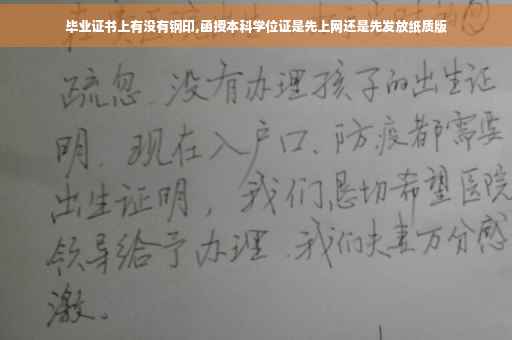 毕业证书上有没有钢印,函授本科学位证是先上网还是先发放纸质版
疏忽、没有办理孩子的出生证
明、现在入户口、防疫都需要
出生证明，我们恳切希望医院
领导给予办理、我们夫妻万分感
激。